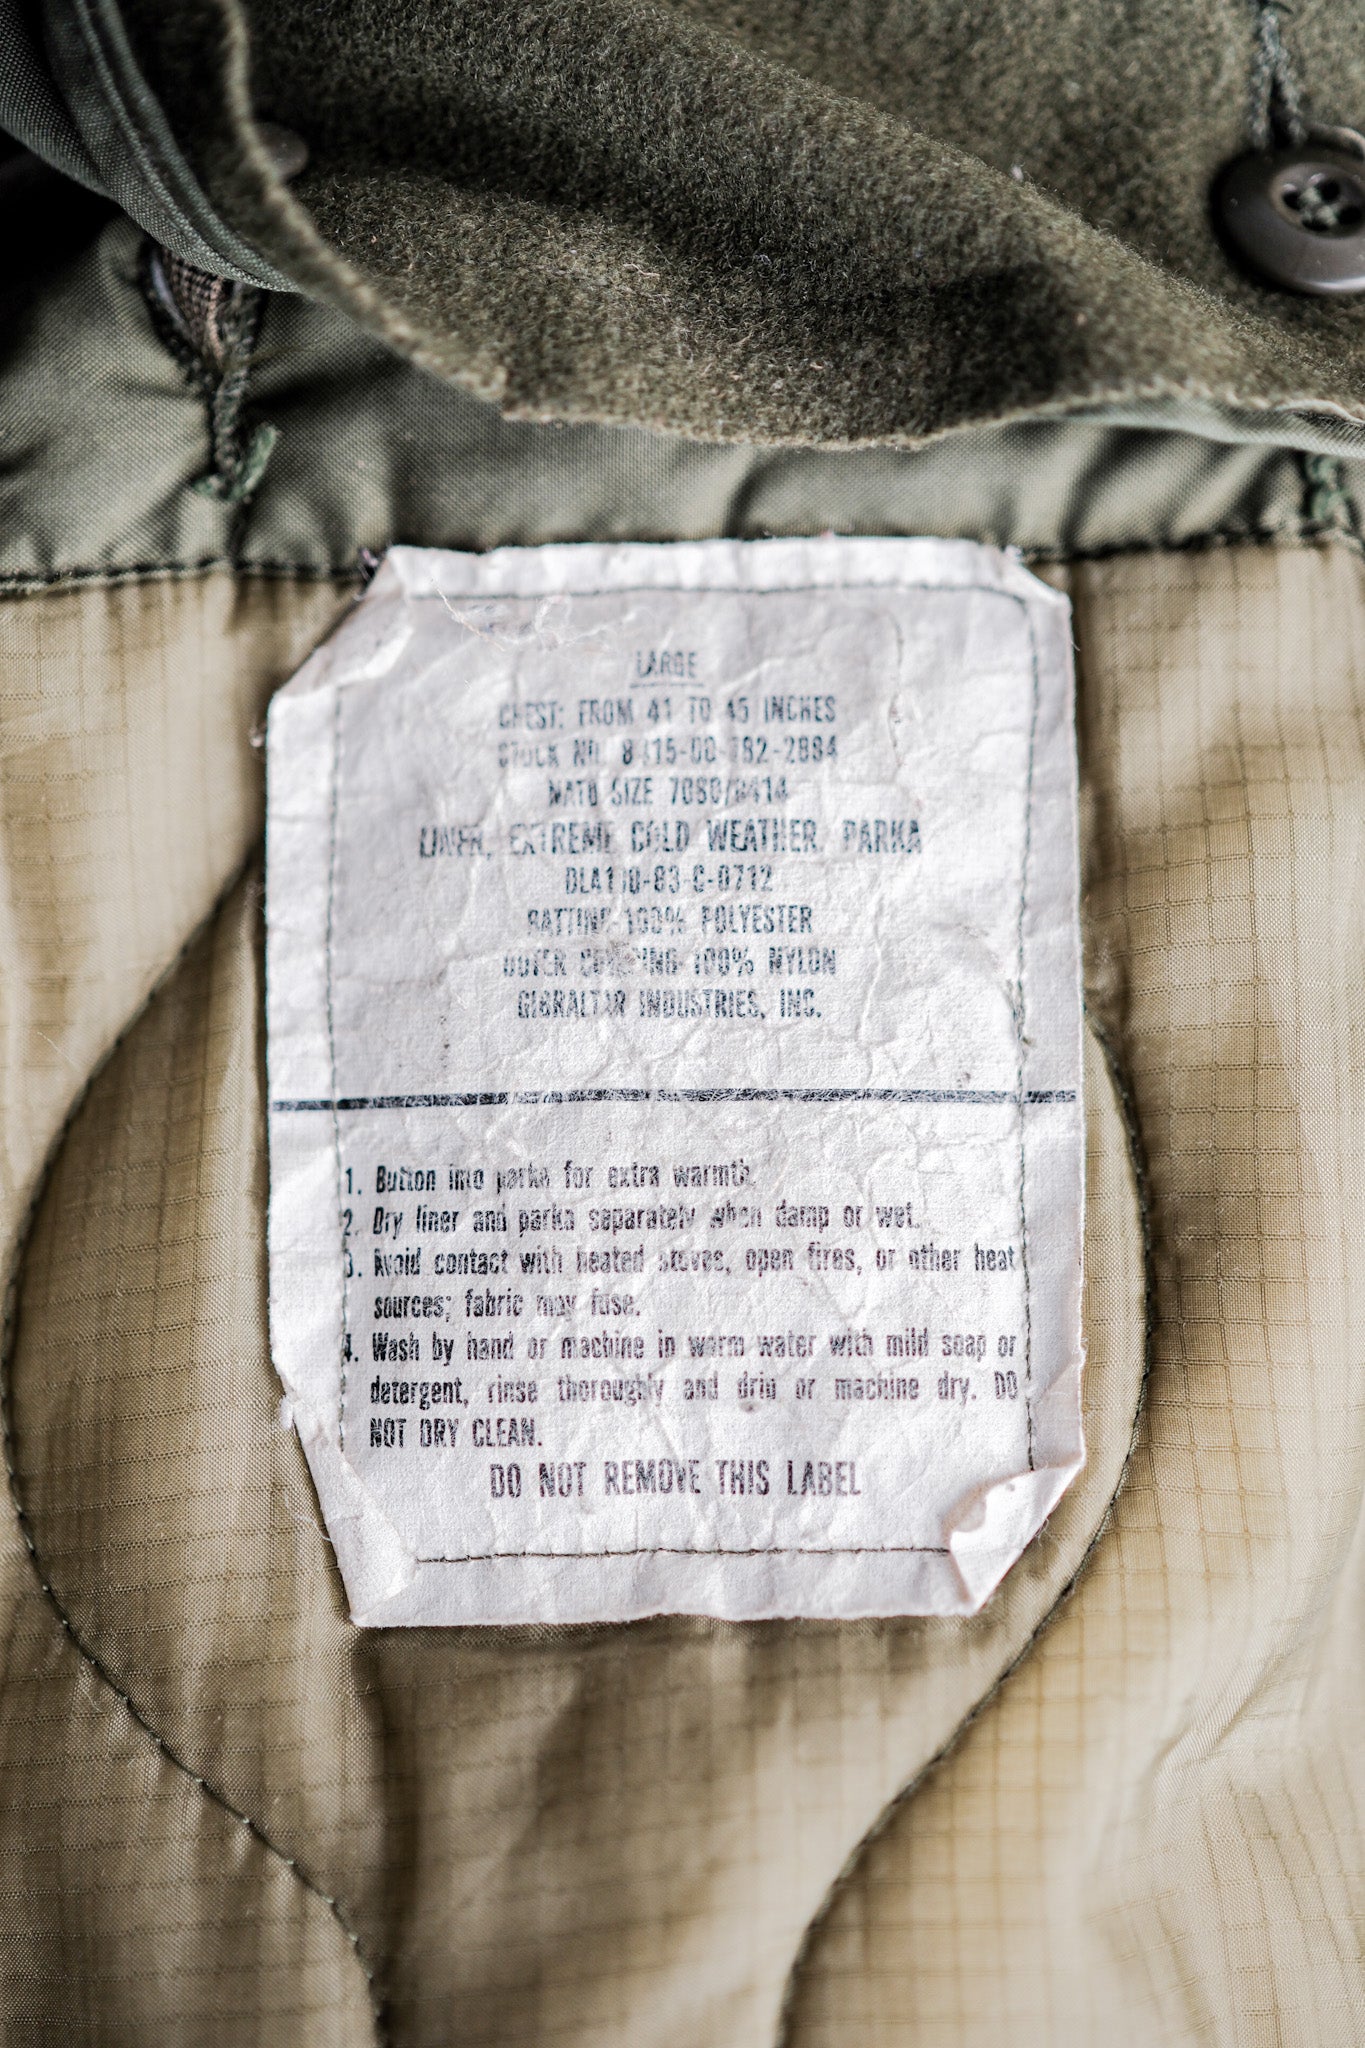 LARGE
CHEST: FROM 41 TO 45 INCHES
STOCK NO. 8415-00-782-2884
NATO SIZE 7080/9414
LINER, EXTREME COLD WEATHER, PARKA
DLA100-83-C-0712
BATTING-100% POLYESTER
OUTER COVERING-100% NYLON
GIBRALTAR INDUSTRIES, INC.
1. Button into parka for extra warmth.
2. Dry liner and parka separately when damp or wet.
3. Avoid contact with heated stoves, open fires, or other heat
sources; fabric may fuse.
4. Wash by hand or machine in warm water with mild soap or
detergent, rinse thoroughly and drip or machine dry. DO
NOT DRY CLEAN.
DO NOT REMOVE THIS LABEL